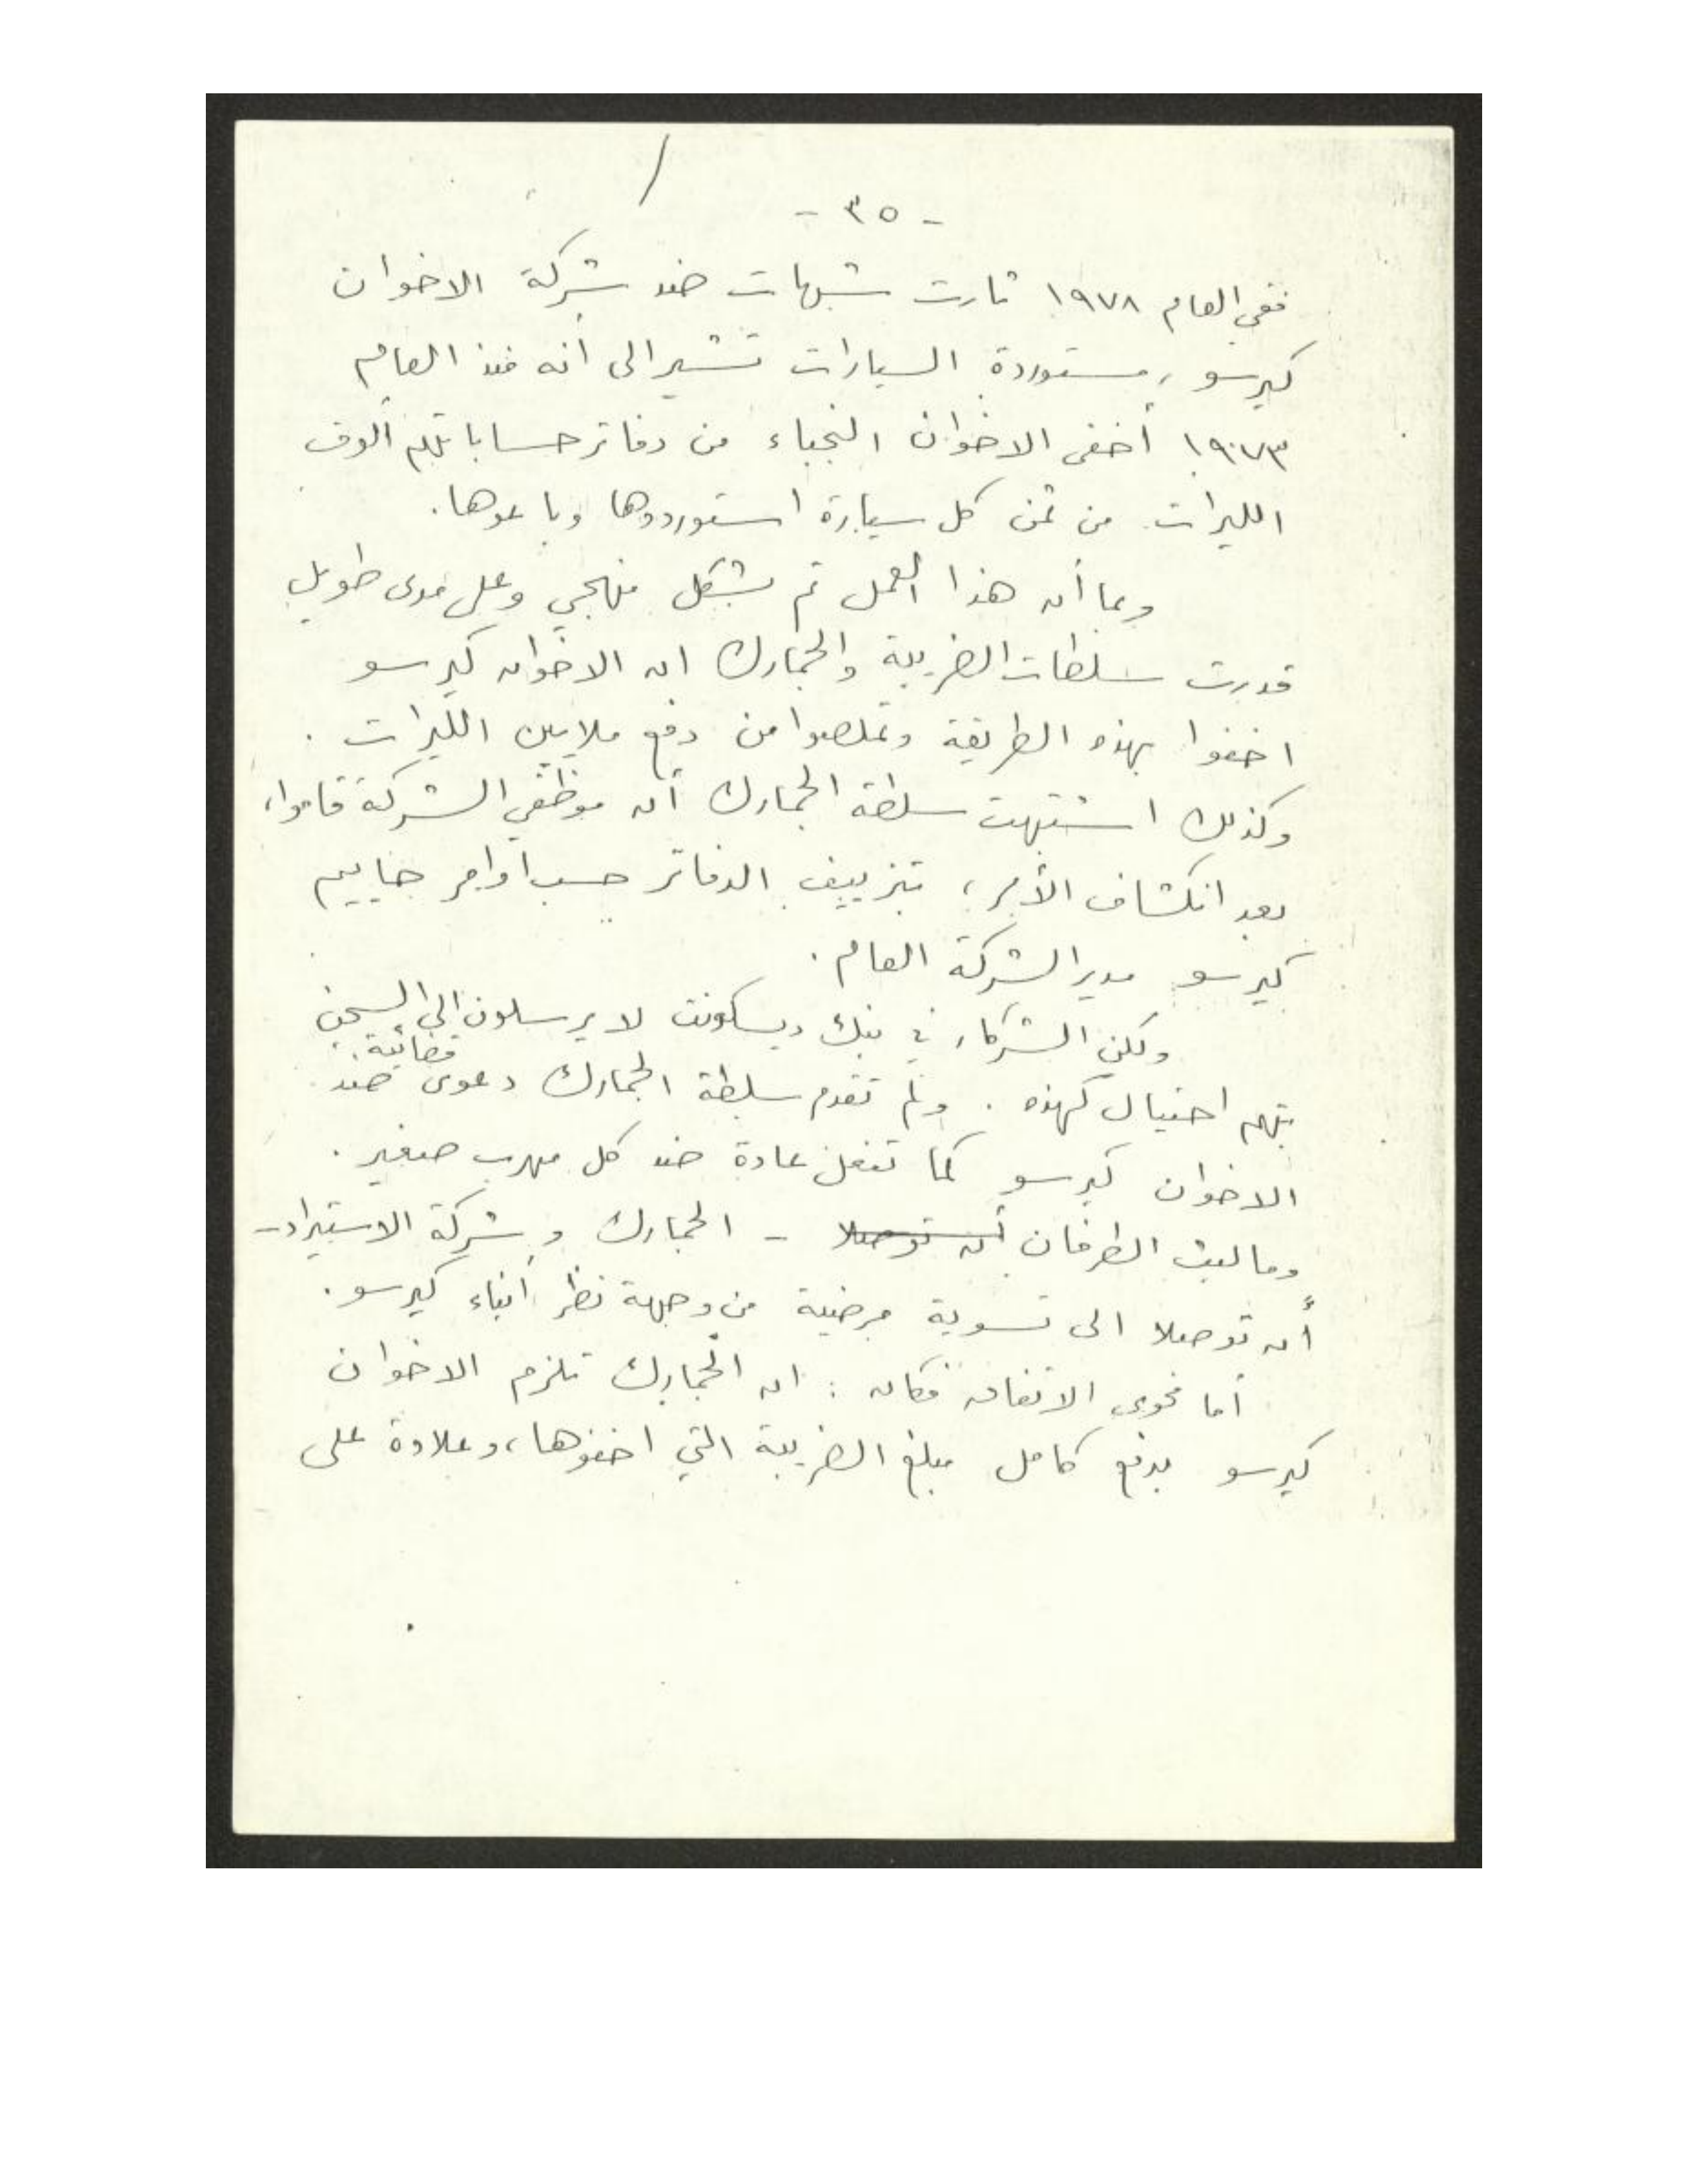 - ٣٥ -
ففي العام ١٩٧٨ ثارت شبهات ضد شركة الاخوان
كيرسو، مستوردة السيارات تشير الى أنه منذ العام
١٩٧٣ أخفى الاخوان النجباء من دفاتر حساباتهم ألوف
الليرات من ثمن كل سيارة استوردوها وباعوها.
وبما أن هذا العمل تم بشكل منهجي وعلى مدى طويل
قدرت سلطات الضريبة والجمارك ان الاخوان كيرسو
اخفوا بهذه الطريقة وتملصوا من دفع ملايين الليرات .
وكذلك اشتبهت سلطة الجمارك أن موظفي الشركة قاموا،
بعد انكشاف الأمر، بتزييف الدفاتر حسب أوامر حاييم
كيرسو مدير الشركة العام.
ولكن الشركاء في بنك ديسكونت لا يرسلون الى السجن
بتهم احتيال كهذه . ولم تقدم سلطة الجمارك دعوى قضائية ضد
الاخوان كيرسو كما تفعل عادة ضد كل مهرب صغير .
وما لبث الطرفان أن توصلا - الجمارك و شركة الاستيراد -
أن توصلا الى تسوية مرضية من وجهة نظر أبناء كيرسو.
أما فحوى الاتفاق فكان : ان الجمارك تلزم الاخوان
كيرسو بدفع كامل مبلغ الضريبة التي اخفوها، وعلاوة على